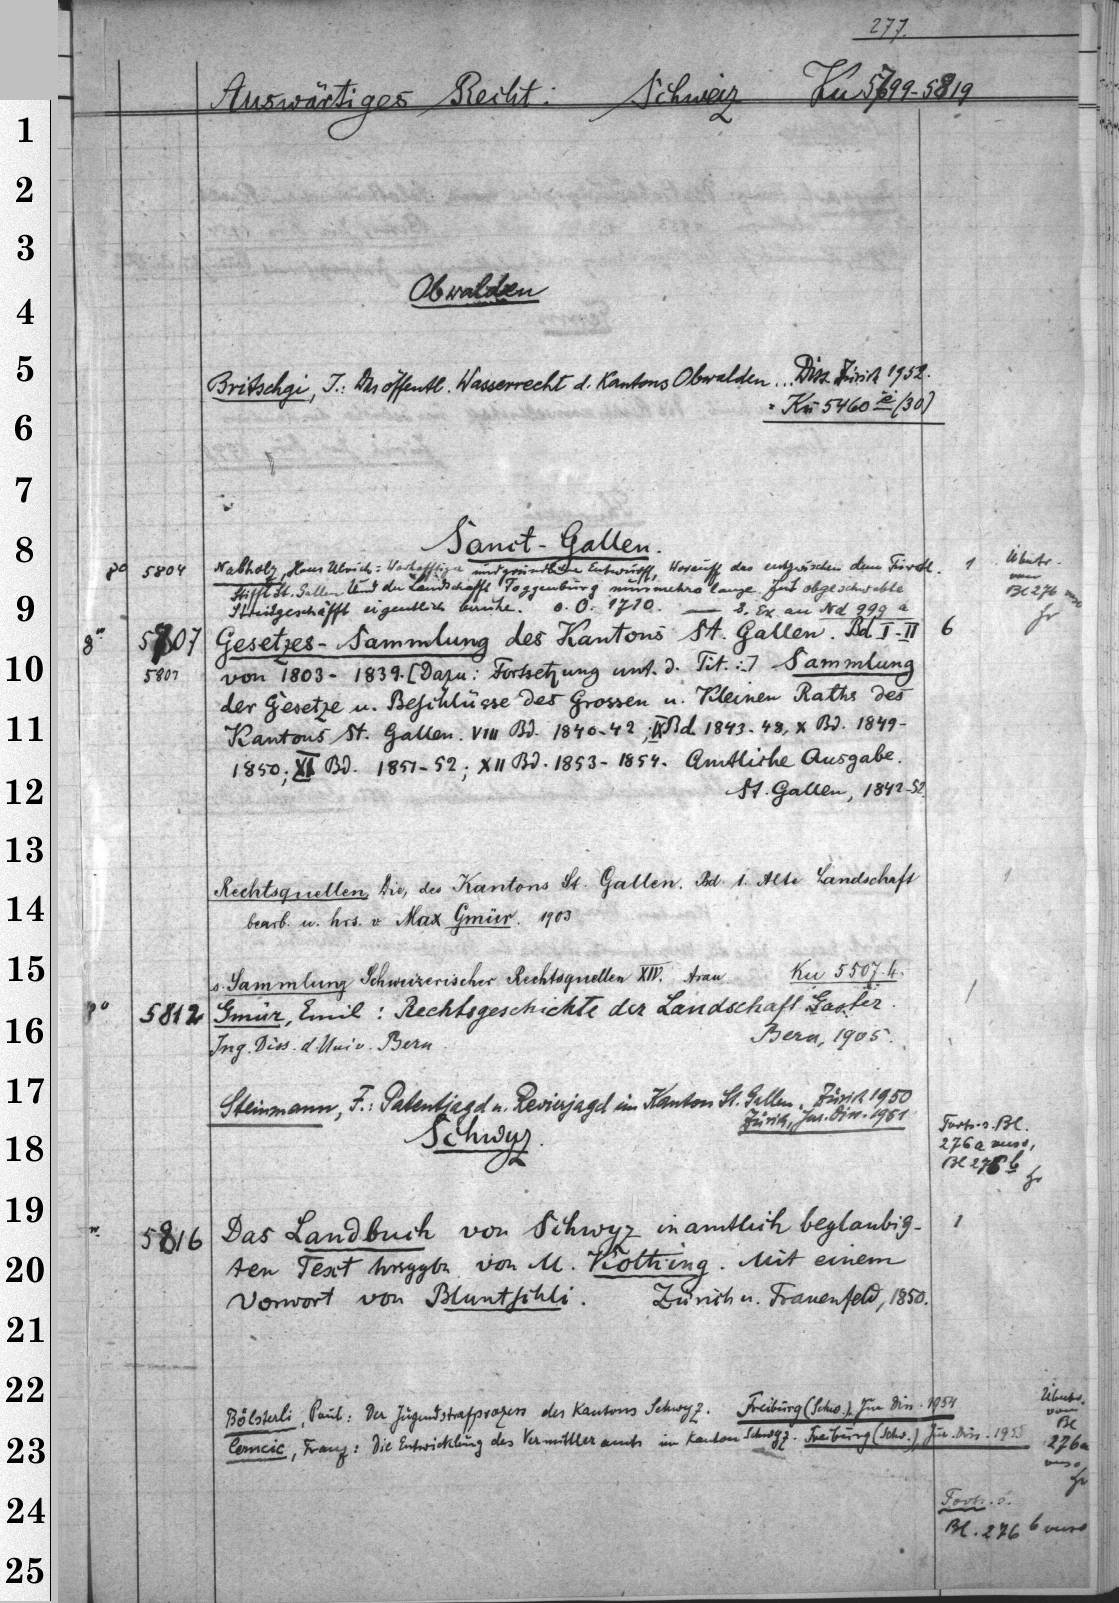 277.
Auswärtiges Recht: Schweiz Ku 5799-5819
Obwalden
Britschgi, J.: Das öffentl. Wasserrecht d. Kantons Obwalden... Diss. Zürich 1952.
Ku 5460 (30)
Sanct-Gallen.
8° 5804 Nabholz, Hans Ulrich: Entwurff, Worauff das entzwischen dem Fürstl. 1 Übertr.
Stifft St. Gallen Und der Landschafft Toggenburg nunmehro lange Zeit obgeschwebte vom
Streitgeschäfft eigentlich beruhe. o. O. 1710. — 2. Ex an Nd 999 a Bl 276
8° 5807 Gesetzes-Sammlung des Kantons St. Gallen. Bd I-II 6
5807 von 1803-1839. [Dazu: Fortsetzung unt. d. Tit.:] Sammlung
der Gesetze u. Beschlüsse des Grossen u. Kleinen Raths des
Kantons St. Gallen. VIII Bd. 1840-42; IX Bd. 1843-48, X Bd. 1849-
1850; XI Bd. 1851-52; XII Bd. 1853-1854. Amtliche Ausgabe.
St. Gallen, 1842-52.
Rechtsquellen, Die, des Kantons St. Gallen. Bd. 1. Alte Landschaft 1
bearb. u. hrs. v Max Gmür. 1903
s. Sammlung Schweizerischer Rechtsquellen XIV. Arau Ku 5507.4.
8° 5812 Gmür, Emil: Rechtsgeschichte der Landschaft Gaster. 1
Ing. Diss. d. Univ. Bern Bern, 1905.
Steinmann, F.: Patentjagd u. Revierjagd im Kanton St. Gallen. Zürich 1950
Zürich, Jur. Diss. 1951
Schwyz.
Forts. s. Bl.
276a verso,
Bl 276 b
5816 Das Landbuch von Schwyz in amtlich beglaubig- 1
ten Text hrsggbn von M. Kothing. Mit einem
Vorwort von Bluntschli. Zürich u. Frauenfeld, 1850.
Bölsterli, Paul: Der Jugendstrafprozess des Kantons Schwyz. Freiburg (Schw.), Jur. Diss. 1954
Cerncic, Franz: Die Entwicklung des Vermittleramts im Kanton Schwyz. Freiburg (Schw.), Jur. Diss. 1955
Übertr.
vom
Bl
276a
verso
Forts. s.
Bl. 276 b verso
1
2
3
4
5
6
7
8
9
10
11
12
13
14
15
16
17
18
19
20
21
22
23
24
25